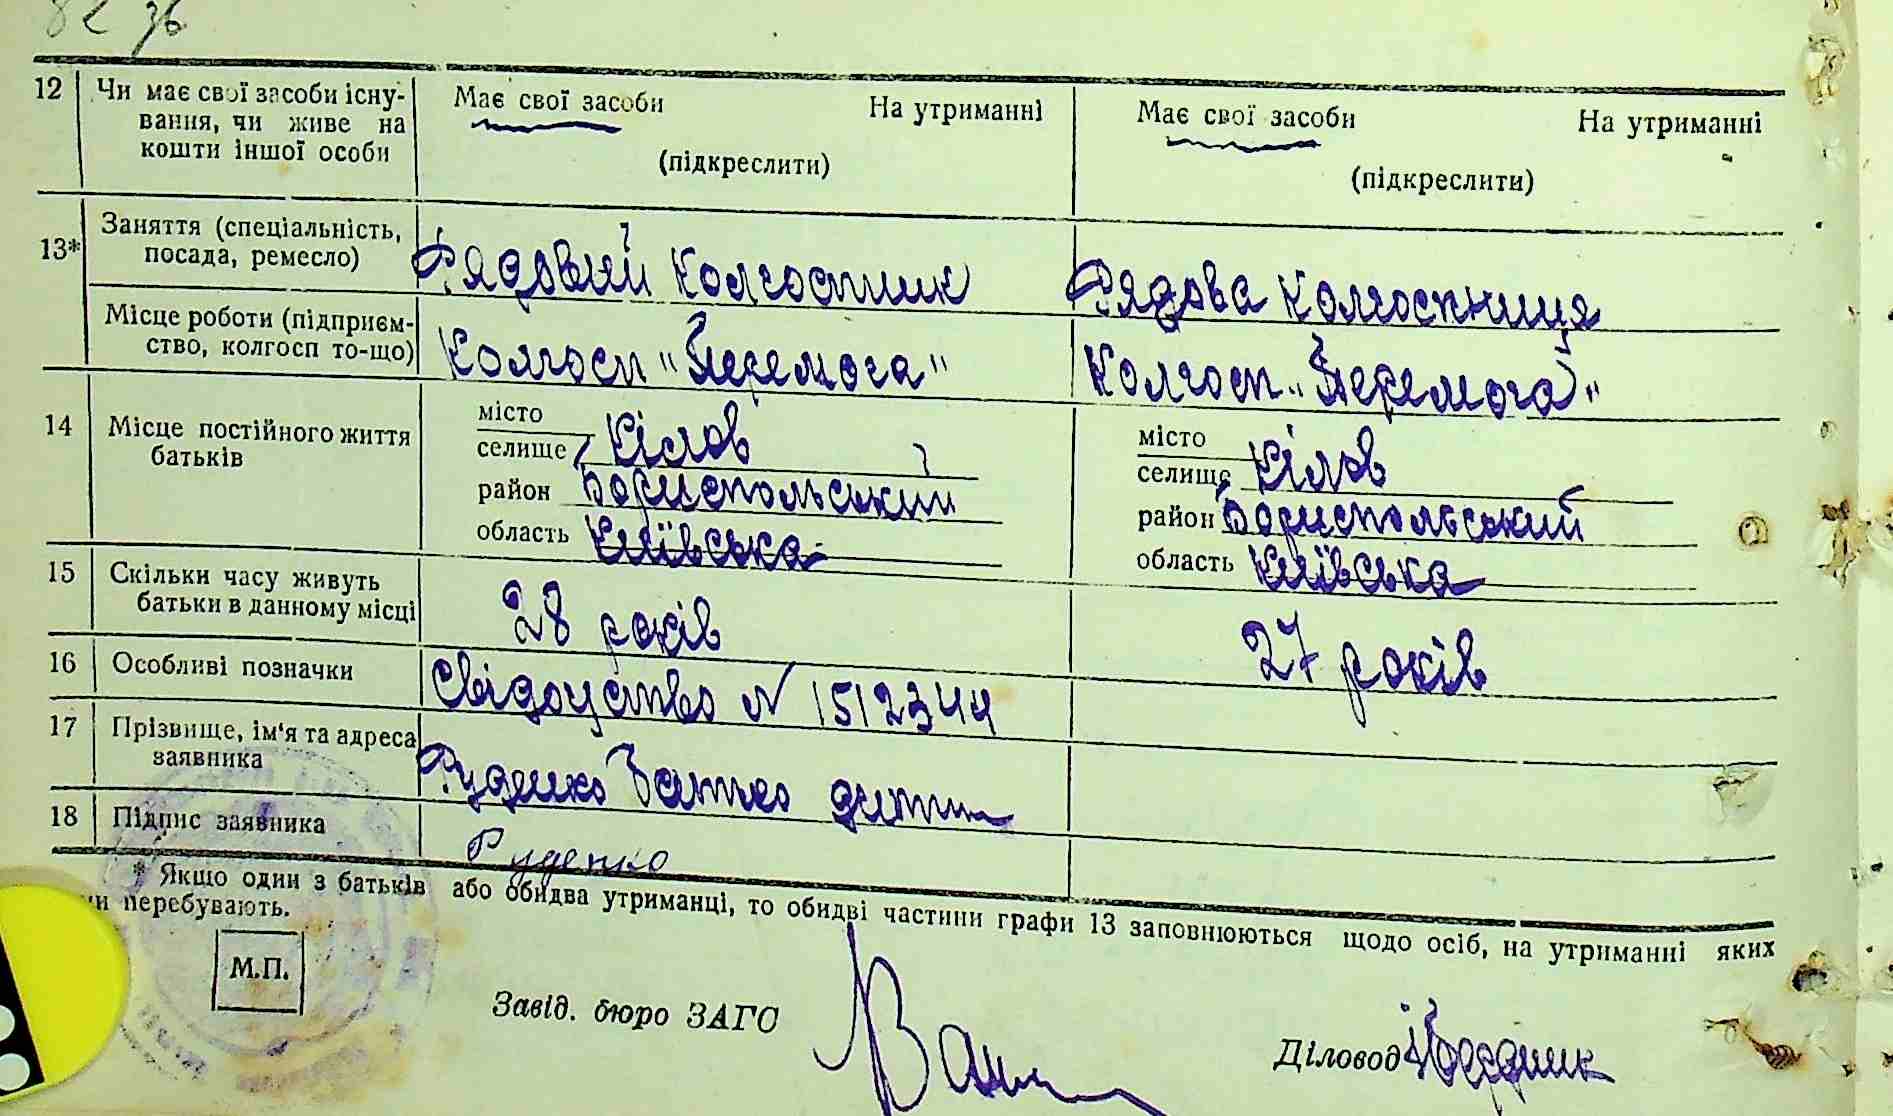 12 Чи має свої засоби існу-
вання, чи живе на
кошти іншої особи
Має свої засоби На утриманні
(підкреслити)
Має свої засоби На утриманні
(підкреслити)
13* Заняття (спеціальність,
посада, ремесло)
Рядовий колгоспник
Рядова колгоспниця
Місце роботи (підприєм-
ство, колгосп то-що)
Колгосп "Перемога"
Колгосп "Перемога"
14 Місце постійного життя
батьків
місто
селище Кілов
район Бориспольський
область Київська
місто
селище Кілов
район Бориспольський
область Київська
15 Скільки часу живуть
батьки в данному місці
28 років
27 років
16 Особливі позначки
Свідоцтво N 1512344
17 Прізвище, ім'я та адреса
заявника
Руденко Батько дитини
18 Підпис заявника
Руденко
* Якщо один з батьків або обидва утриманці, то обидві частини графи 13 заповнюються щодо осіб, на утриманні яких
перебувають.
М.П.
Завід. бюро ЗАГС
Діловод